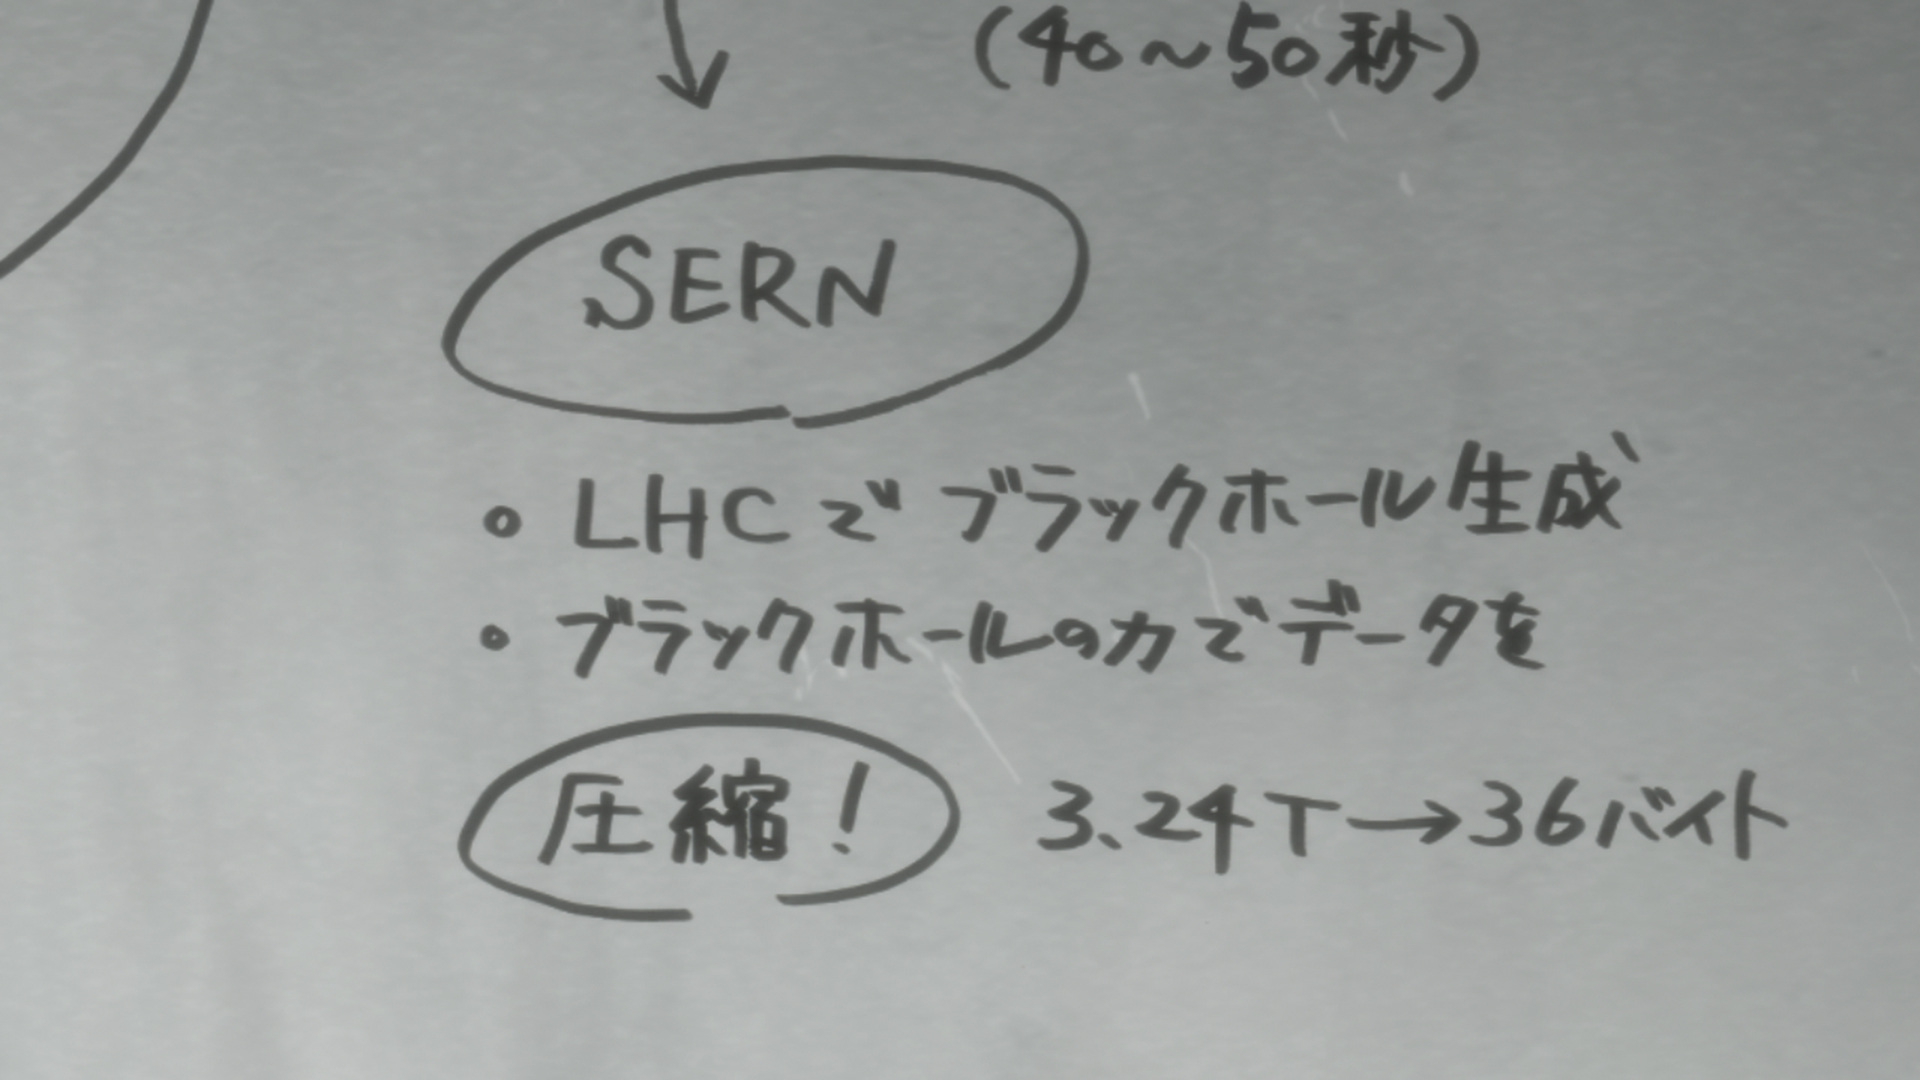 (40～50秒)
SERN
• LHCでブラックホール生成
• ブラックホールの力でデータを
圧縮! 3.24T→36バイト